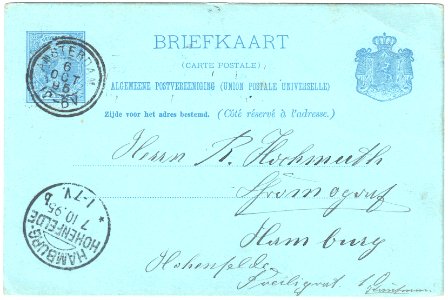 BRIEFKAART
(CARTE POSTALE)
ALGEMEENE POSTVEREENIGING (UNION POSTALE UNIVERSELLE)
Zijde voor het adres bestemd. (Côté réservé à l'adresse.)
AMSTERDAM
6
OCT
95
Herrn R. Hochmuth
Hamburg
Hohenfelde
HAMBURG
HOHENFELDE
7 10.95
* 1-7V. b